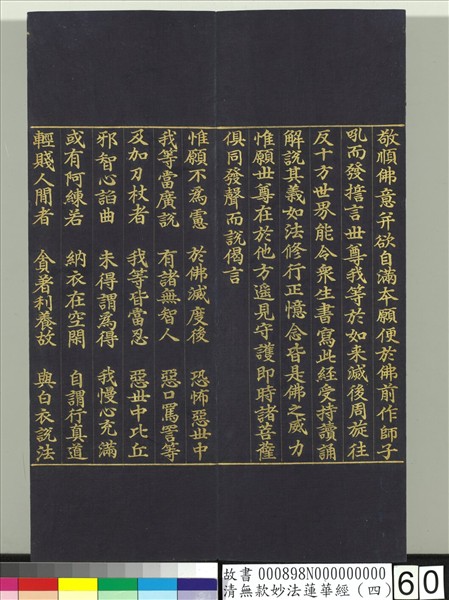 敬順佛意并欲自滿本願便於佛前作師子
吼而發誓言世尊我等於如来滅後周旋往
反十方世界能令衆生書寫此經受持讀誦
解說其義如法修行正憶念皆是佛之威力
惟願世尊在於他方遥見守護即時諸菩薩
俱同發聲而說偈言
惟願不為慮 於佛滅度後 恐怖惡世中
我等當廣說 有諸無智人 惡口罵詈等
及加刀杖者 我等皆當忍 惡世中比丘
邪智心諂曲 未得謂為得 我慢心充滿
或有阿練若 納衣在空閑 自謂行真道
輕賤人間者 貪著利養故 與白衣說法
故書 000898N000000000
清無款妙法蓮華經（四）
60